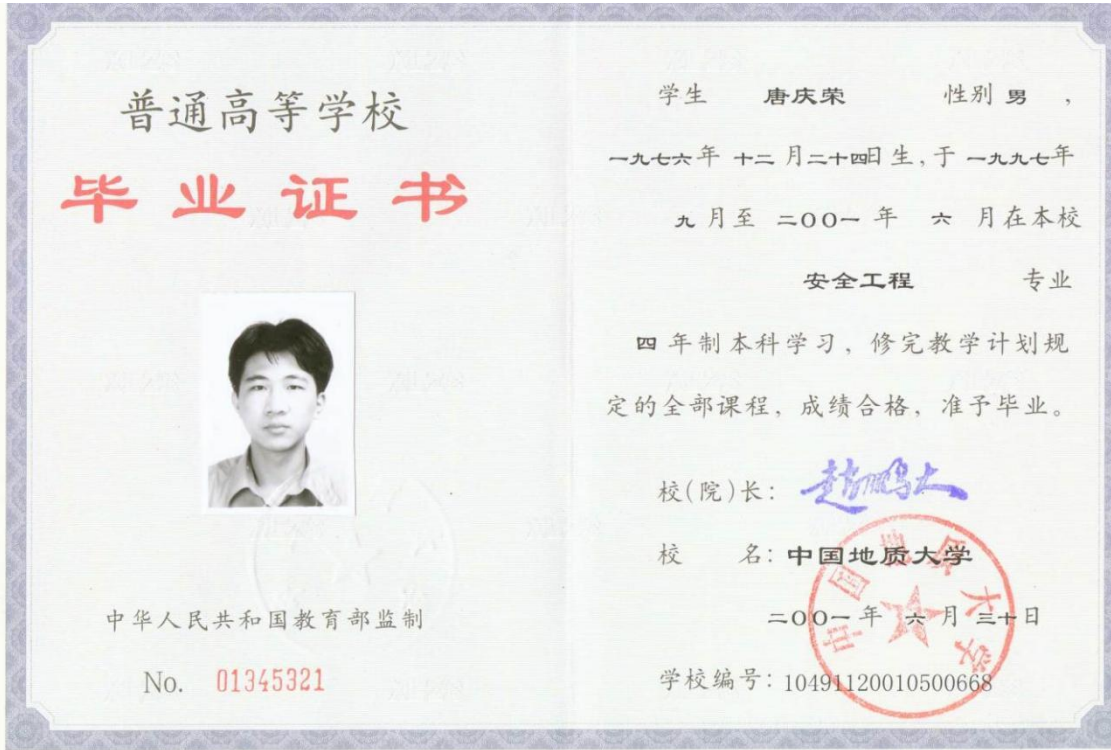 普通高等学校
毕业证书
中华人民共和国教育部监制
No. 01345321
学生 唐庆荣 性别 男 ，
一九七六年 十二 月二十四日生,于 一九九七年
九 月至 二〇〇一 年 六 月在本校
安全工程 专业
四 年制本科学习，修完教学计划规
定的全部课程，成绩合格，准予毕业。
校(院)长: 赵鹏大
校 名: 中国地质大学
二〇〇一 年 六 月 三十日
学校编号: 104911200105006​68
中国地质大学